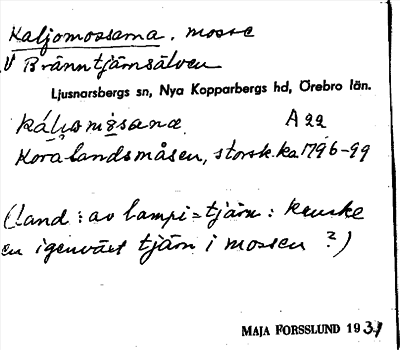 Kaljomossarna. mosse
V Bränntjärnsälven
Ljusnarsbergs sn, Nya Kopparbergs hd, Örebro län.
kál̩jomɔsana A 22
Koralandsmåsen, storsk.ka 1796-99
(land : av lampi = tjärn : kanske
en igenväxt tjärn i mossen ?)
MAJA FORSSLUND 1931